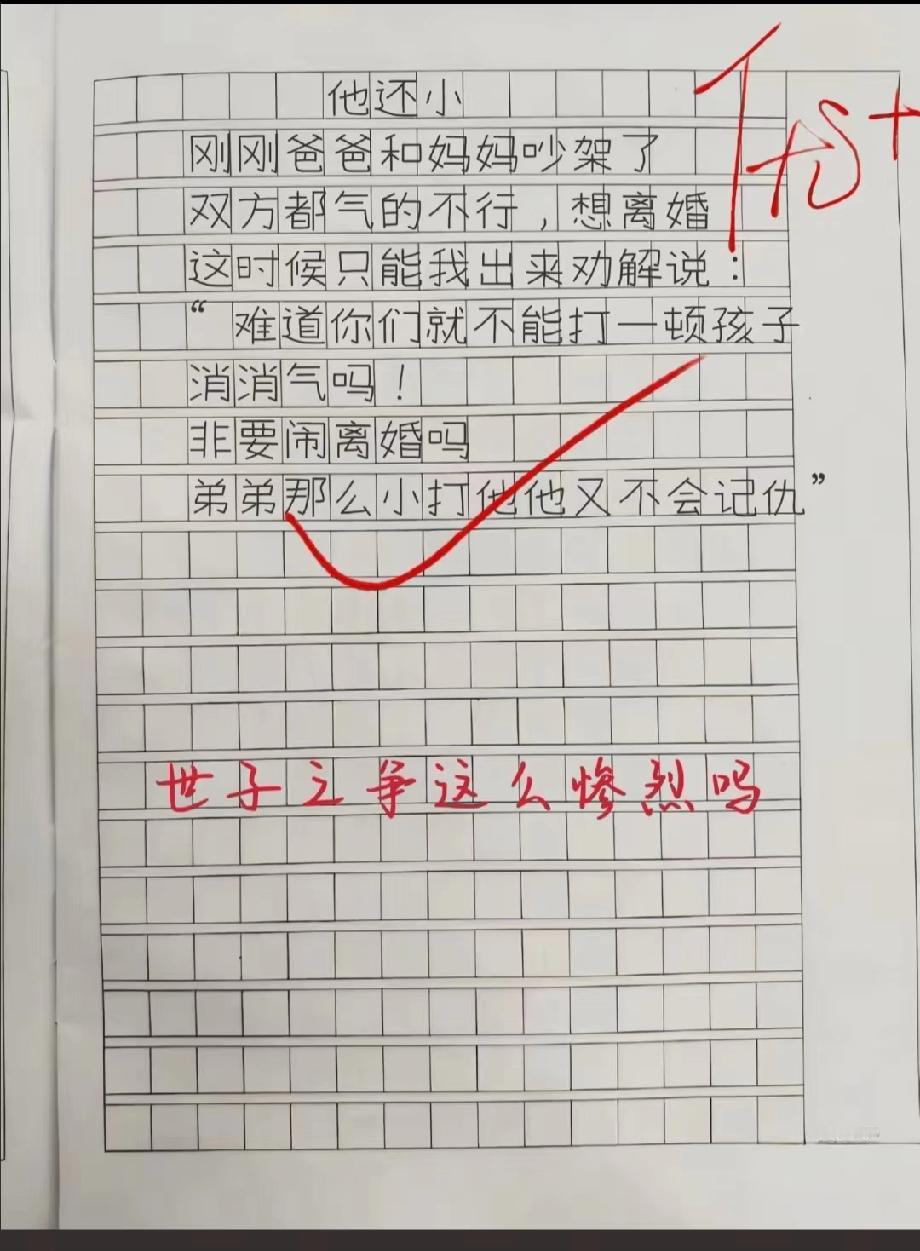 他还小
刚刚爸爸和妈妈吵架了
双方都气的不行，想离婚
这时候只能我出来劝解说：
“难道你们就不能打一顿孩子
消消气吗！
非要闹离婚吗
弟弟那么小打他他又不会记仇”
世子之争这么惨烈吗